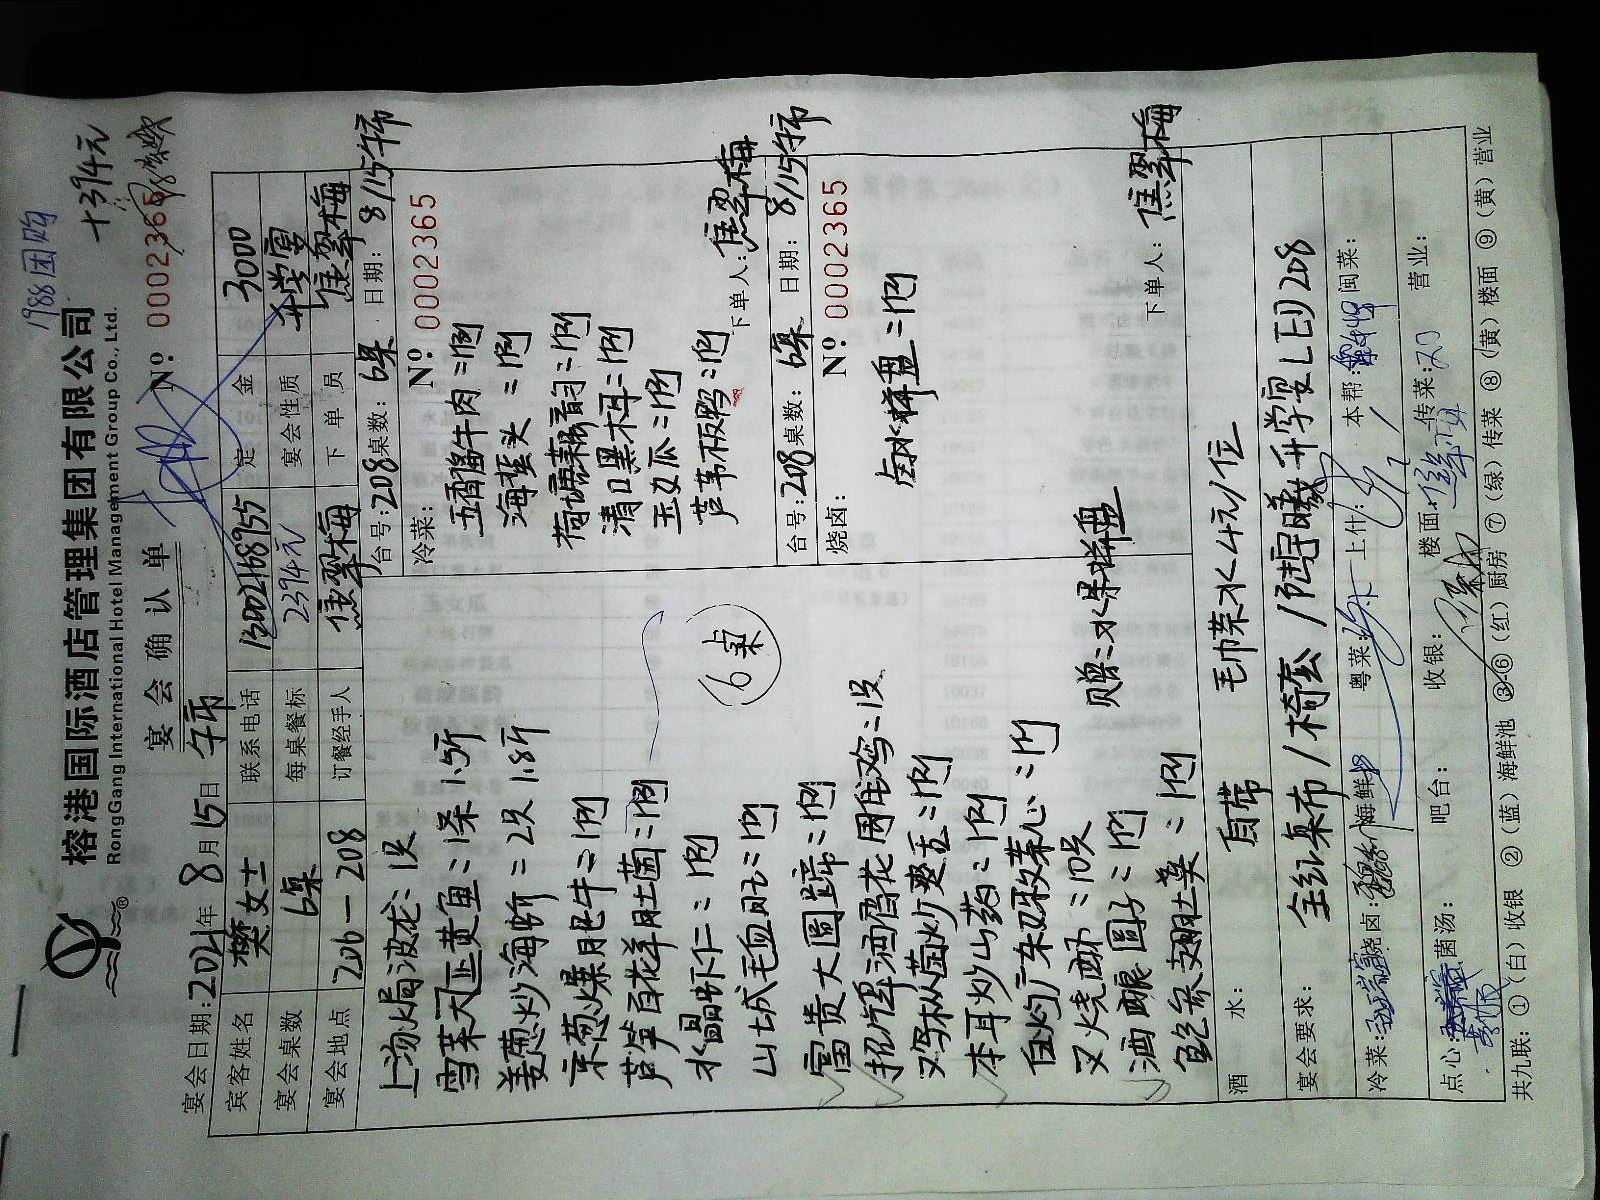 1988团购
榕港国际酒店管理集团有限公司
RongGang International Hotel Management Group Co., Ltd.
+394元
宴会确认单
Nº 0002365
宴会日期:2021年8月15日 午市
宾客姓名 樊女士 联系电话 13002168955 定金 3000
宴会桌数 6桌 每桌餐标 2394元 宴会性质 升学宴
宴会地点 206-208 订餐经手人 焦翠梅 下单员 焦翠梅
上汤焗波龙:1只
雪菜大黄鱼:1条 1.5斤
姜葱炒海蟹:2只 1.8斤
京葱爆肥牛:1例
芦笋百花拌肚菌:1例
水晶虾仁:1例
山城毛血旺:1例
富贵大圆蹄:1例
招牌酒香花雕鸡:1只
鸡枞菌炒:1例
木耳炒山药:1例
白灼广东菜心:1例
叉烧酥:10只
酒酿圆子:1例
1例
6桌
赠:水果拼盘
台号:208 桌数:6桌 日期:8/15午市
冷菜: Nº 0002365
五香酱牛肉:1例
海蜇头:1例
荷塘藕韵:1例
清口黑木耳:1例
玉女瓜:1例
芦苇板鸭:1例
下单人:焦翠梅
台号:208 桌数:6桌 日期:8/15午市
烧卤: Nº 0002365
卤水拼盘:1例
下单人:焦翠梅
酒水: 自带 毛巾茶水4元/位
宴会要求: 全红桌布/椅套/陆宇曦升学宴LED208
冷菜: 烧卤: 海鲜: 粤菜: 上什: 本帮: 闽菜:
点心: 菌汤: 吧台: 收银: 楼面: 传菜: 营业:
共九联:①(白)收银 ②(蓝)海鲜池 ③-⑥(红)厨房 ⑦(绿)传菜 ⑧(黄)楼面 ⑨(黄)营业